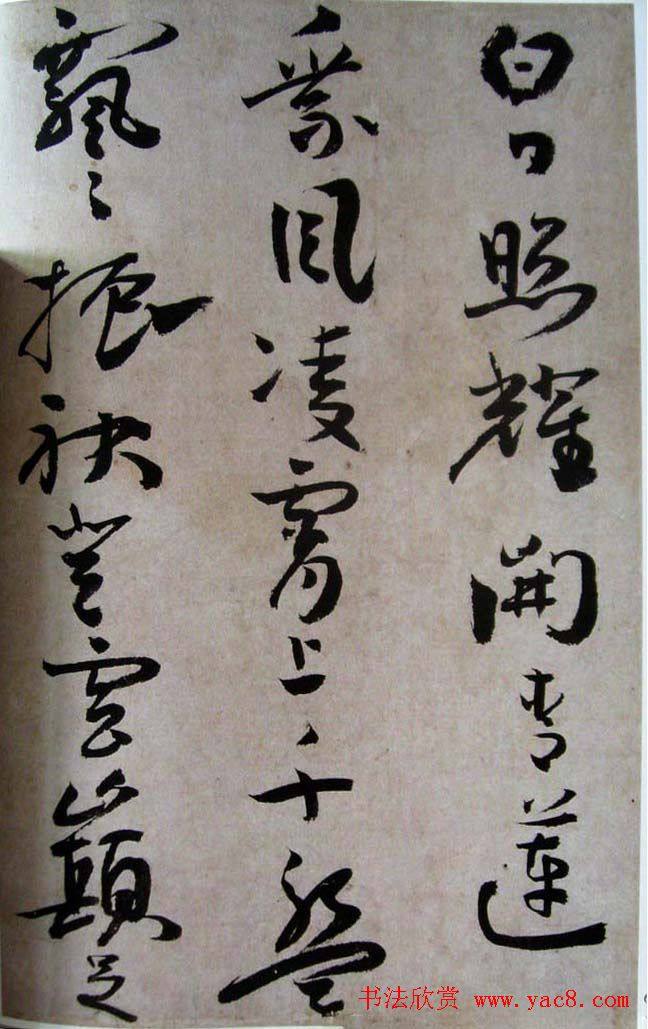 白日照耀開青蓮
乘風凌霄上千盤
飄〻振袂登雲巔足
书法欣赏 www.yac8.com